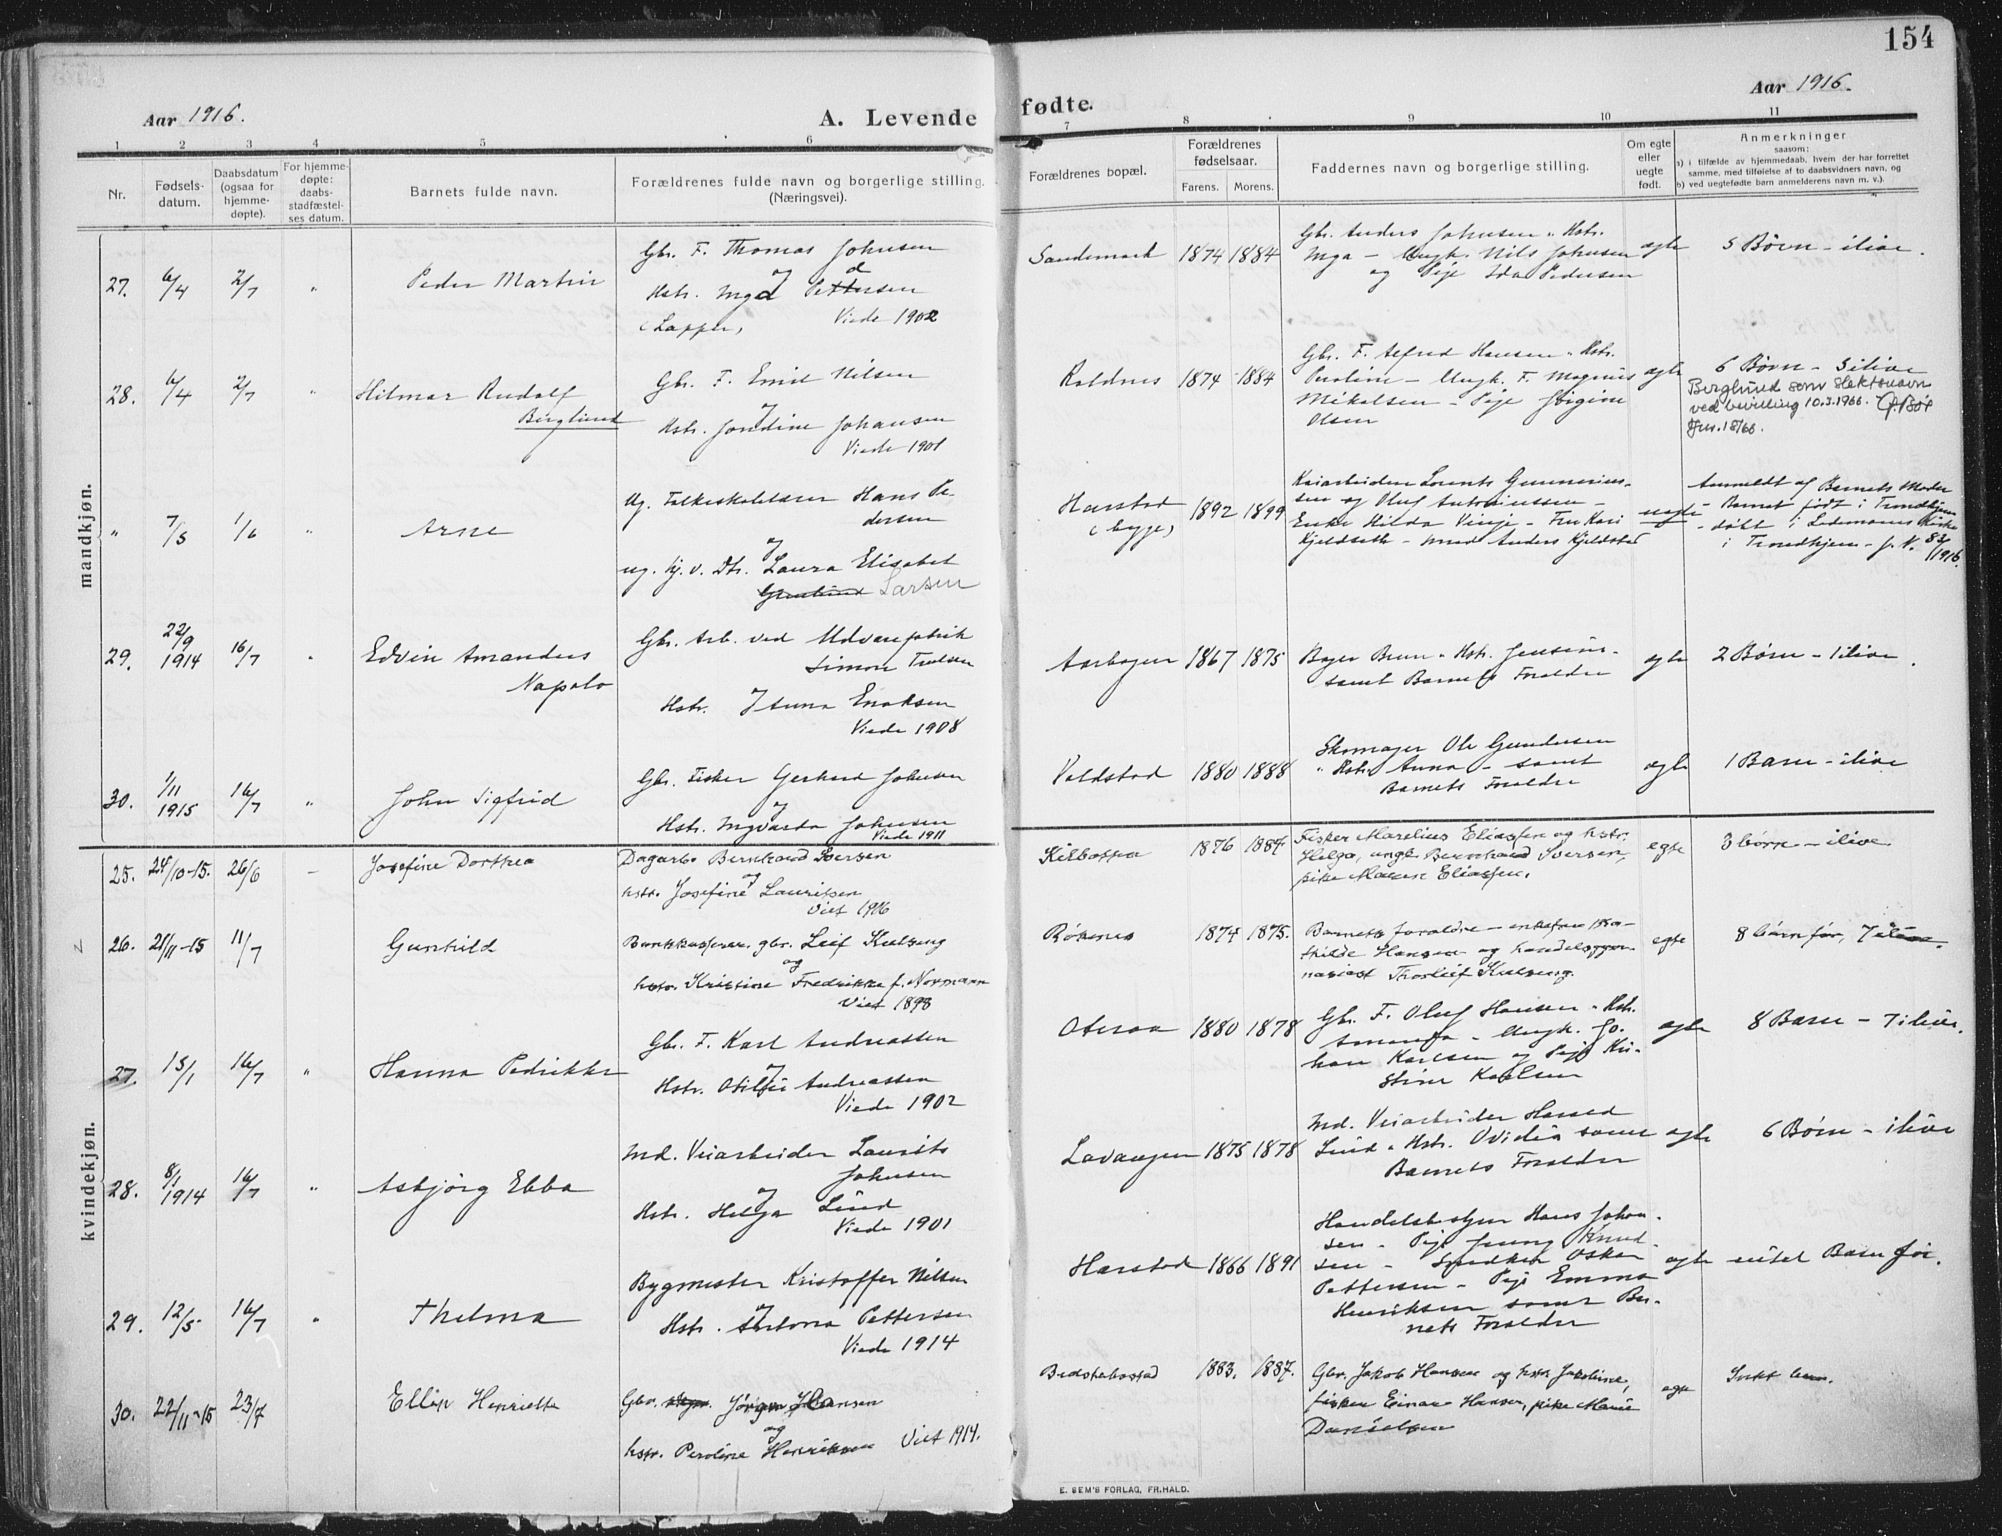 154
Aar 1916.
A. Levende fødte.
Aar 1916.
1 2 3 4 5 6 7 8 9 10 11
Nr.
Fødsels-
datum.
Daabsdatum
(ogsaa for
hjemme-
døpte).
For hjemme-
døpte:
daabs-
stadfæstel-
ses datum.
Barnets fulde navn.
Forældrenes fulde navn og borgerlige stilling.
(Næringsvei).
Forældrenes bopæl.
Forældrenes
fødselsaar.
Farens. Morens.
Faddernes navn og borgerlige stilling.
Om egte
eller
uegte
født.
Anmerkninger
saasom:
a) i tilfælde av hjemmedaab, hvem der har forrettet
samme, med tilføielse af to daabsvidners navn, og
b) ved uegtefødte barn anmelderens navn m. v.).
mandkjøn.
27. 6/4 2/7 " Peder Martin
Gbr. F. Thomas Johnsen
og
Hstr. Inga Pedersen
(Lapper)
Viede 1902
Sandemark 1874 1884
Gbr. Anders Johnsen " Hstr.
Inga – Ungk. Nils Johnsen
og Pige Ida Pedersen
egte 5 Børn – ilive.
28. 6/4 2/7 " Hilmar Rudolf
Berglund
Gbr. F. Emil Nilsen
og
Hstr. Jordine Johansen
Viede 1901
Roldnes 1874 1884
Gbr. F. Alfred Hansen " Hstr.
Peroline – Ungk. F. Magnus
Mikalsen – Pige Jørgine
Olsen
egte 6 Børn – 5 ilive
Berglund som slektsnavn
ved bevilling 10.3.1966.
Jnr. 18/66.
" 7/5 1/6 " Arne
Ug. Folkeskolelærer Hans Pe-
dersen
og
ug. Hj. v. Dtr. Laura Elisabet
Larsen
Harstad 1892 1899
(bygge)
Kaiarbeider Lorents Gunnerius-
sen og Oluf Antoniussen –
Enke Hilda Vinje – Fru Kari
Kjeldseth – med Anders Kjeldstad
uegte
Anmeldt af Barnets Moder
– Barnet født i Trondhjem
– døbt i Lademoens Kirke
i Trondhjem – j. N. 83/1916.
29. 22/9 1914 16/7 " Edvin Amandus
Napolo
Gbr. Arb. ved Uldvarefabrik
Simon Trelsen
Hstr. Anna Enoksen
Viede 1908
Aarbogen 1867 1875
Bager Brun " Hstr. Jensine –
samt Barnets Foraldre
egte 2 Børn – 1 ilive.
30. 1/11 1915 16/7 " John Sigfrid
Gbr. Fisker Gerhard Johnsen
og
Hstr. Ingvarda Johnsen
Viede 1911
Voldstad 1880 1888
Skomager Ole Gundersen
" Hstr. Anna – samt
Barnets Foraldre
egte 1 Barn – ilive
kvindekjøn.
25. 24/10-15. 26/6 – Josefine Dorthea
Dagarb. Bernhard Iversen
og
hstr. Josefine Lauritsen
Viet 1906
Kilbotten 1876 1884
Fisker Marelius Eliassen og hstr.
Helga, ungk. Bernhard Iversen,
pike Maren Eliassen.
egte 3 børn – ilive.
26. 21/11-15 11/7 Gunhild
Bankkasserer gbr. Leif Kulseng
og
hstr. Kristine Fredrikke f. Normann
Viet 1898
Røkenes 1874 1875.
Barnets foraldre – enkefru Ma-
thilde Hansen og handelsgym-
nasiast Thorleif Kulseng.
egte 8 børn før, 7 ilive.
27. 15/1 16/7 " Hanna Pedrikke
Gbr. F. Karl Andreassen
og
Hstr. Otilie Andreassen
Viede 1902
Oteraa 1880 1878
Gbr. F. Oluf Hansen " Hstr.
Amanda – Ungk. Jo-
han Karlsen og Pige Kri-
stine Karlsen
egte 8 Barn – 7 ilive.
28. 8/1 1914 16/7 " Asbjørg Ebba
Md. Veiarbeider Laurits
Johnsen
og
Hstr. Helga Lind
Viede 1901
Lavangen 1875 1878
Md. Veiarbeider Harald
Lind " Hstr. Ovidia samt
Barnets Foraldre
egte 6 Børn – ilive
29. 12/5 16/7 " Thelma
Bygmester Kristoffer Nilsen
og
Hstr. Antona Pettersen
Viede 1914
Harstad 1866 1891
Handelsbestyrer Hans Johan-
sen – Pige Jenny Knud-
sen – Snedker Oskar
Pettersen – Pige Emma
Henriksen samt Bar-
nets Foraldre
egte intet Barn før.
30. 22/11-15 23/7 Ellen Henriette
Gbr. Jørgen Hansen
og
hstr. Peroline Henriksen Viet 1914.
1883. 1887.
Gbr. Jakob Hansen og hstr. Jakobine,
fisker Einar Hansen, pike Marie
Danielsen
egte Intet barn.
E. SEM'S FORLAG, FR.HALD.